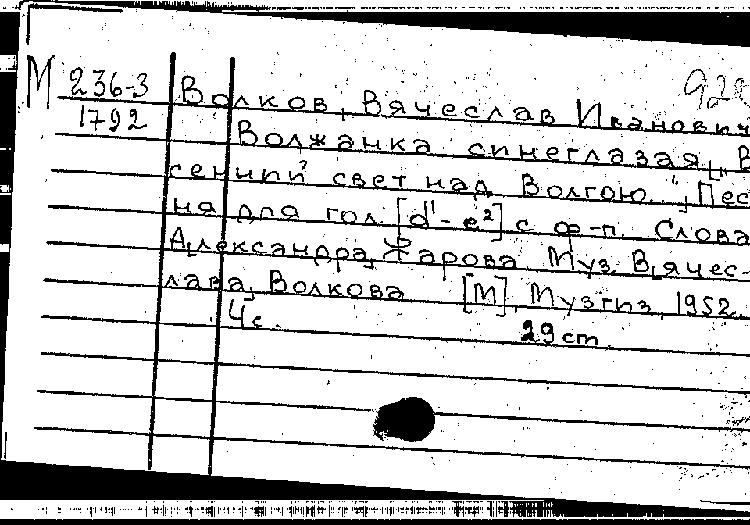 М 236-3 Волков, Вячеслав Иванович
1792 Волжанка синеглазая. ["В
сенний свет над Волгою"]. Пес
ня для гол. [d¹-e²] с ф-п. Слова
Александра Жарова Муз. Вячес-
лава Волкова [М], Музгиз, 1952.
4 с. 29 cm.